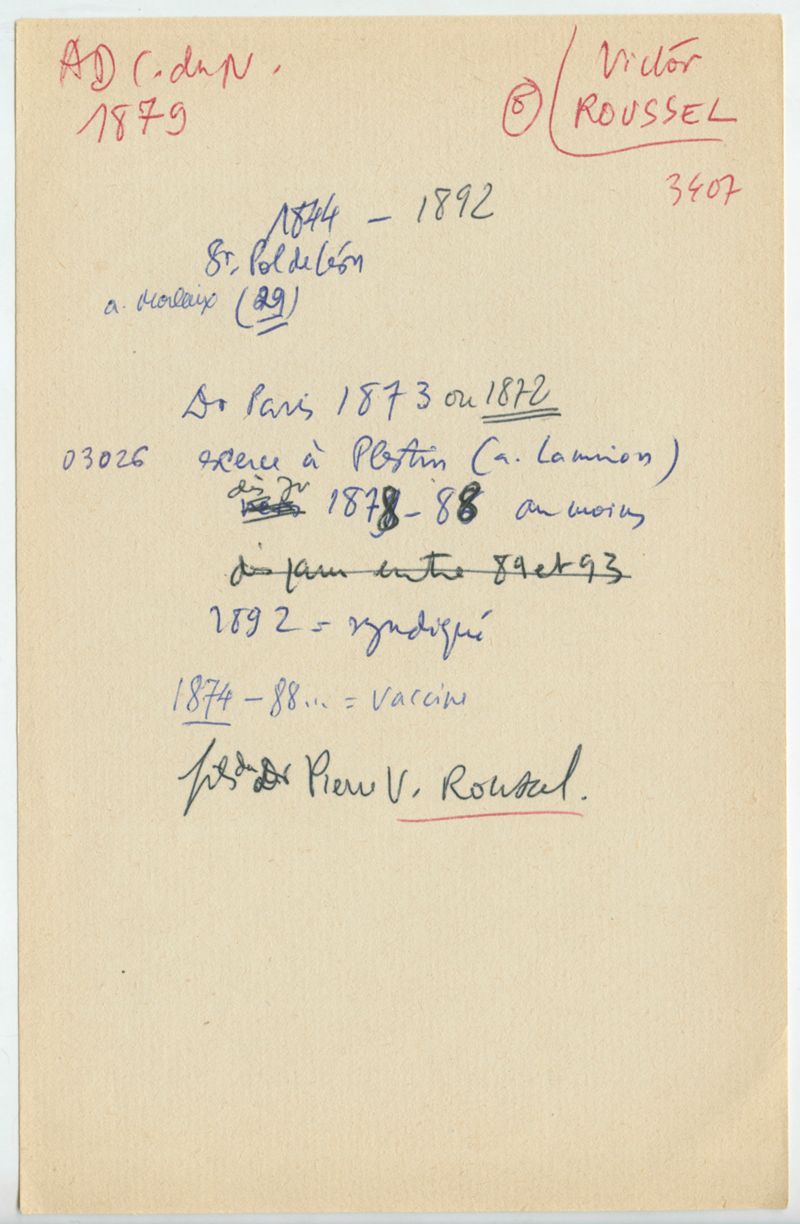 AD C. du N.
1879
Victor
⑥ ROUSSEL
3407
1844 – 1892
St. Pol de Léon
a. Morlaix (29)
Dr Paris 1873 ou 1872
03026 exerce à Plestin (a. Lannion)
dès
1878 – 88 au moins
disparu entre 89 et 93
1892 = syndiqué
1874 – 88... = vaccine
fils du Dr Pierre V. Roussel.